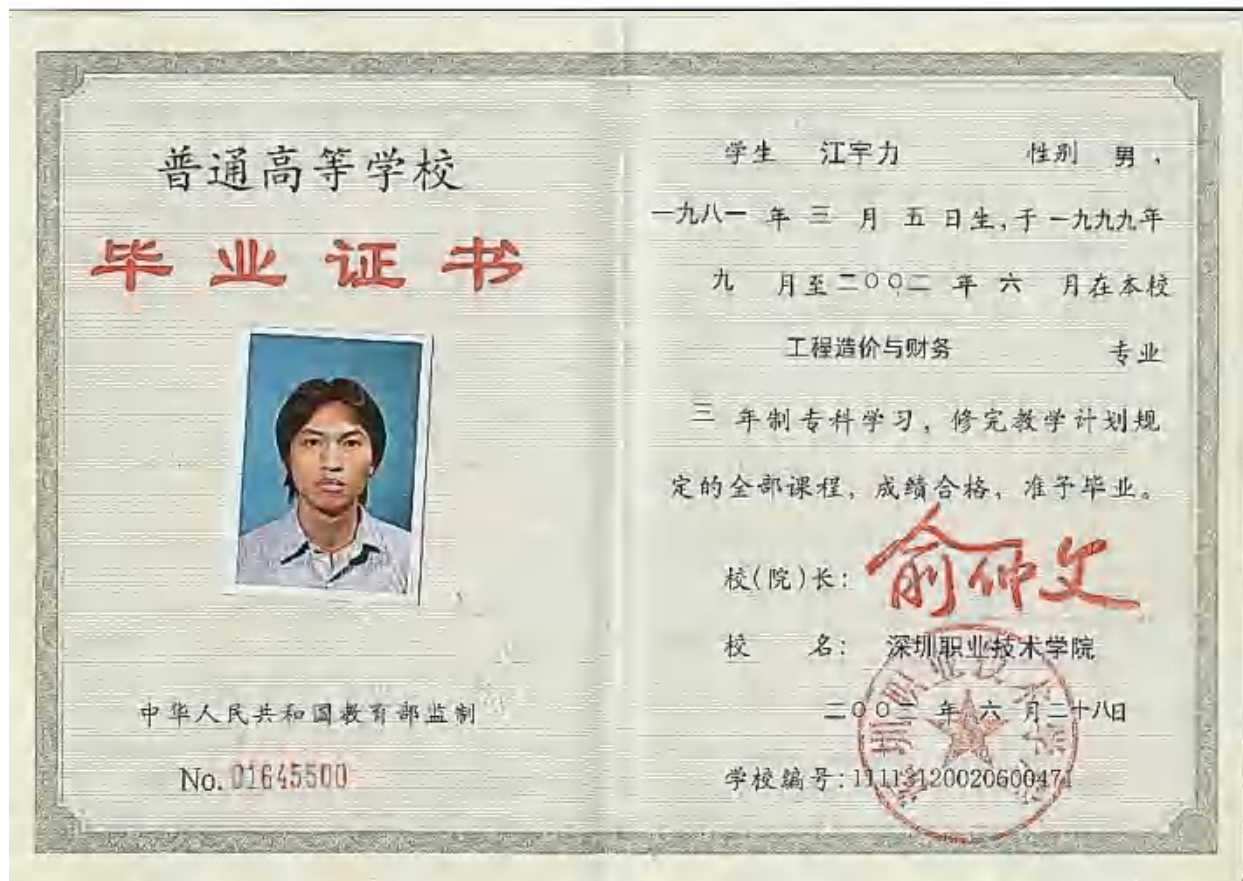 普通高等学校
毕业证书
中华人民共和国教育部监制
No. 01645500
学生 江宇力 性别 男,
一九八一 年 三 月 五 日生,于 一九九九年
九 月至 二〇〇二 年 六 月在本校
工程造价与财务 专业
三 年制专科学习,修完教学计划规
定的全部课程,成绩合格,准予毕业。
校(院)长: 俞仲文
校 名: 深圳职业技术学院
二〇〇二 年 六 月二十八日
学校编号:11113120020600471
深圳职业技术学院